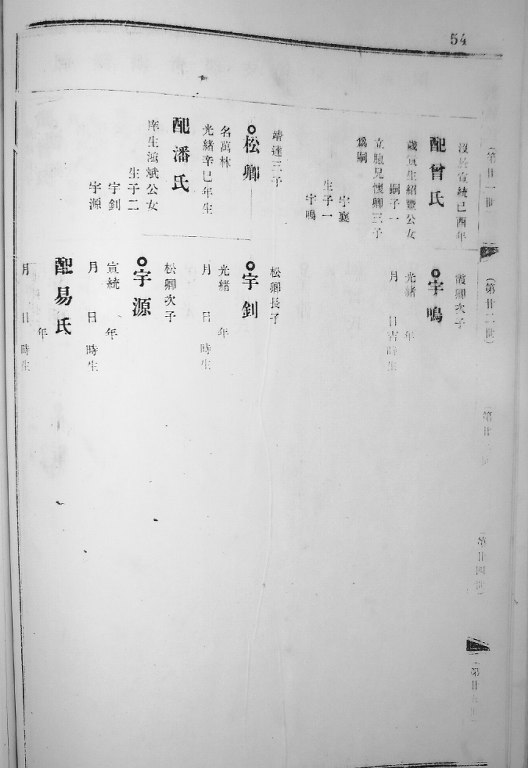 54
(第廿一世)
沒於宣統己酉年
配曾氏
歲貢生紹鹽公女
嗣子一
立聰兄懷卿三子
爲嗣
宇襄
生子一
宇鳴
靖達三子
松卿
名萬林
光緒辛巳年生
配潘氏
庠生濱斌公女
生子二
宇釗
宇源
(第廿二世)
霞卿次子
宇鳴
光緒 年
月 日吉時生
松卿長子
宇釗
光緒 年
月 日 時生
松卿次子
宇源
宣統 年
月 日 時生
配易氏
年
月 日 時生
第廿四世